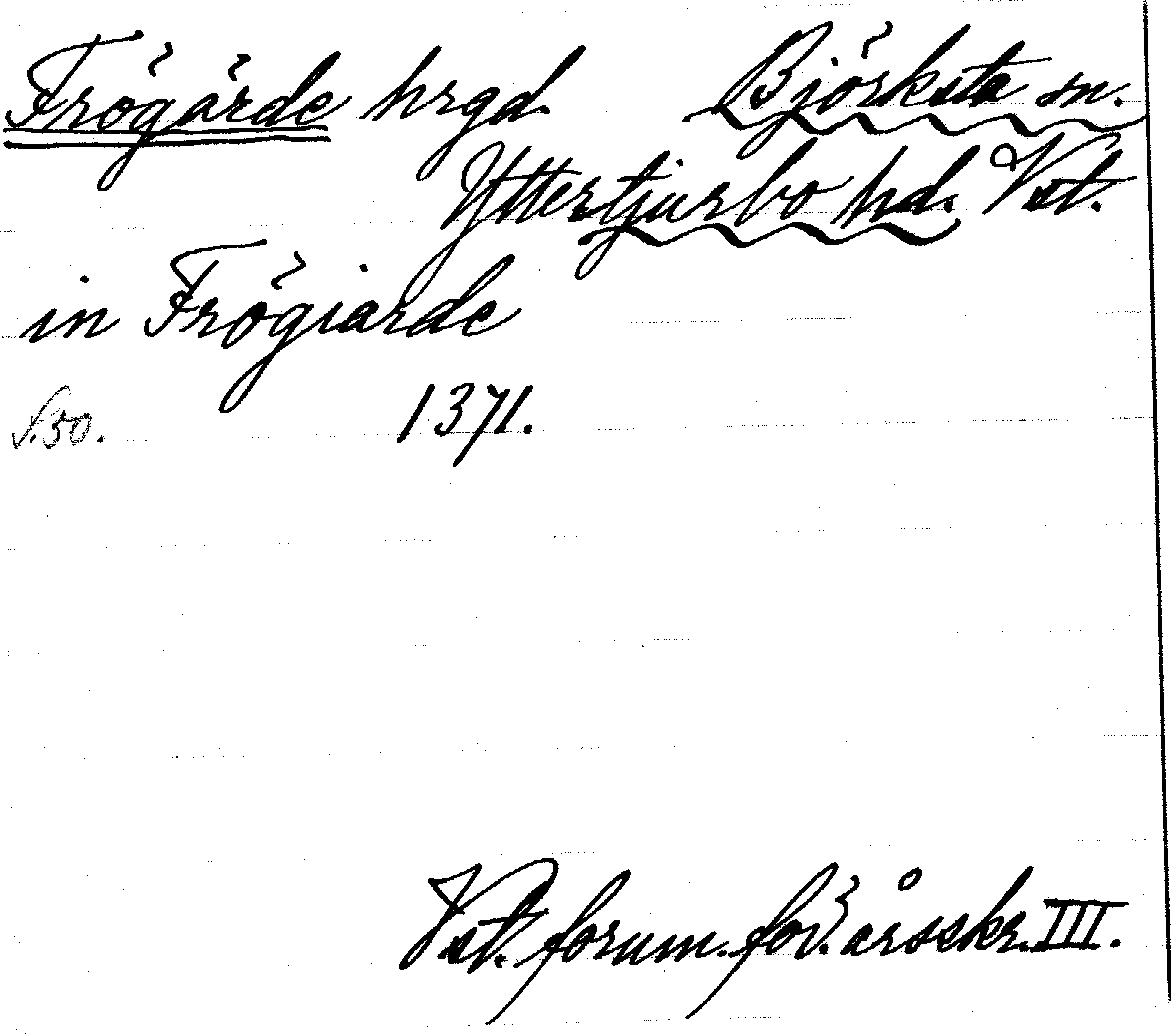 Frögärde hrgd. Björksta sn.
Yttertjurbo hd. Vst.
in Frögiarde
s.50. 1371.
Vst. fornm. för. årsskr. III.